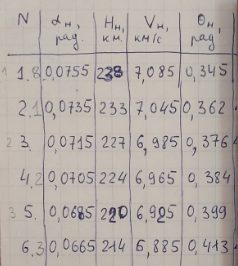 N αн, рад. Hн, км. Vн, км/с Θн, рад
1 1.8 0,0755 238 7,085 0,345
2.1 0,0735 233 7,045 0,362
2 3. 0,0715 227 6,985 0,376
4.2 0,0705 224 6,965 0,384
3 5. 0,0685 220 6,925 0,399
6.3 0,0665 214 6,885 0,413